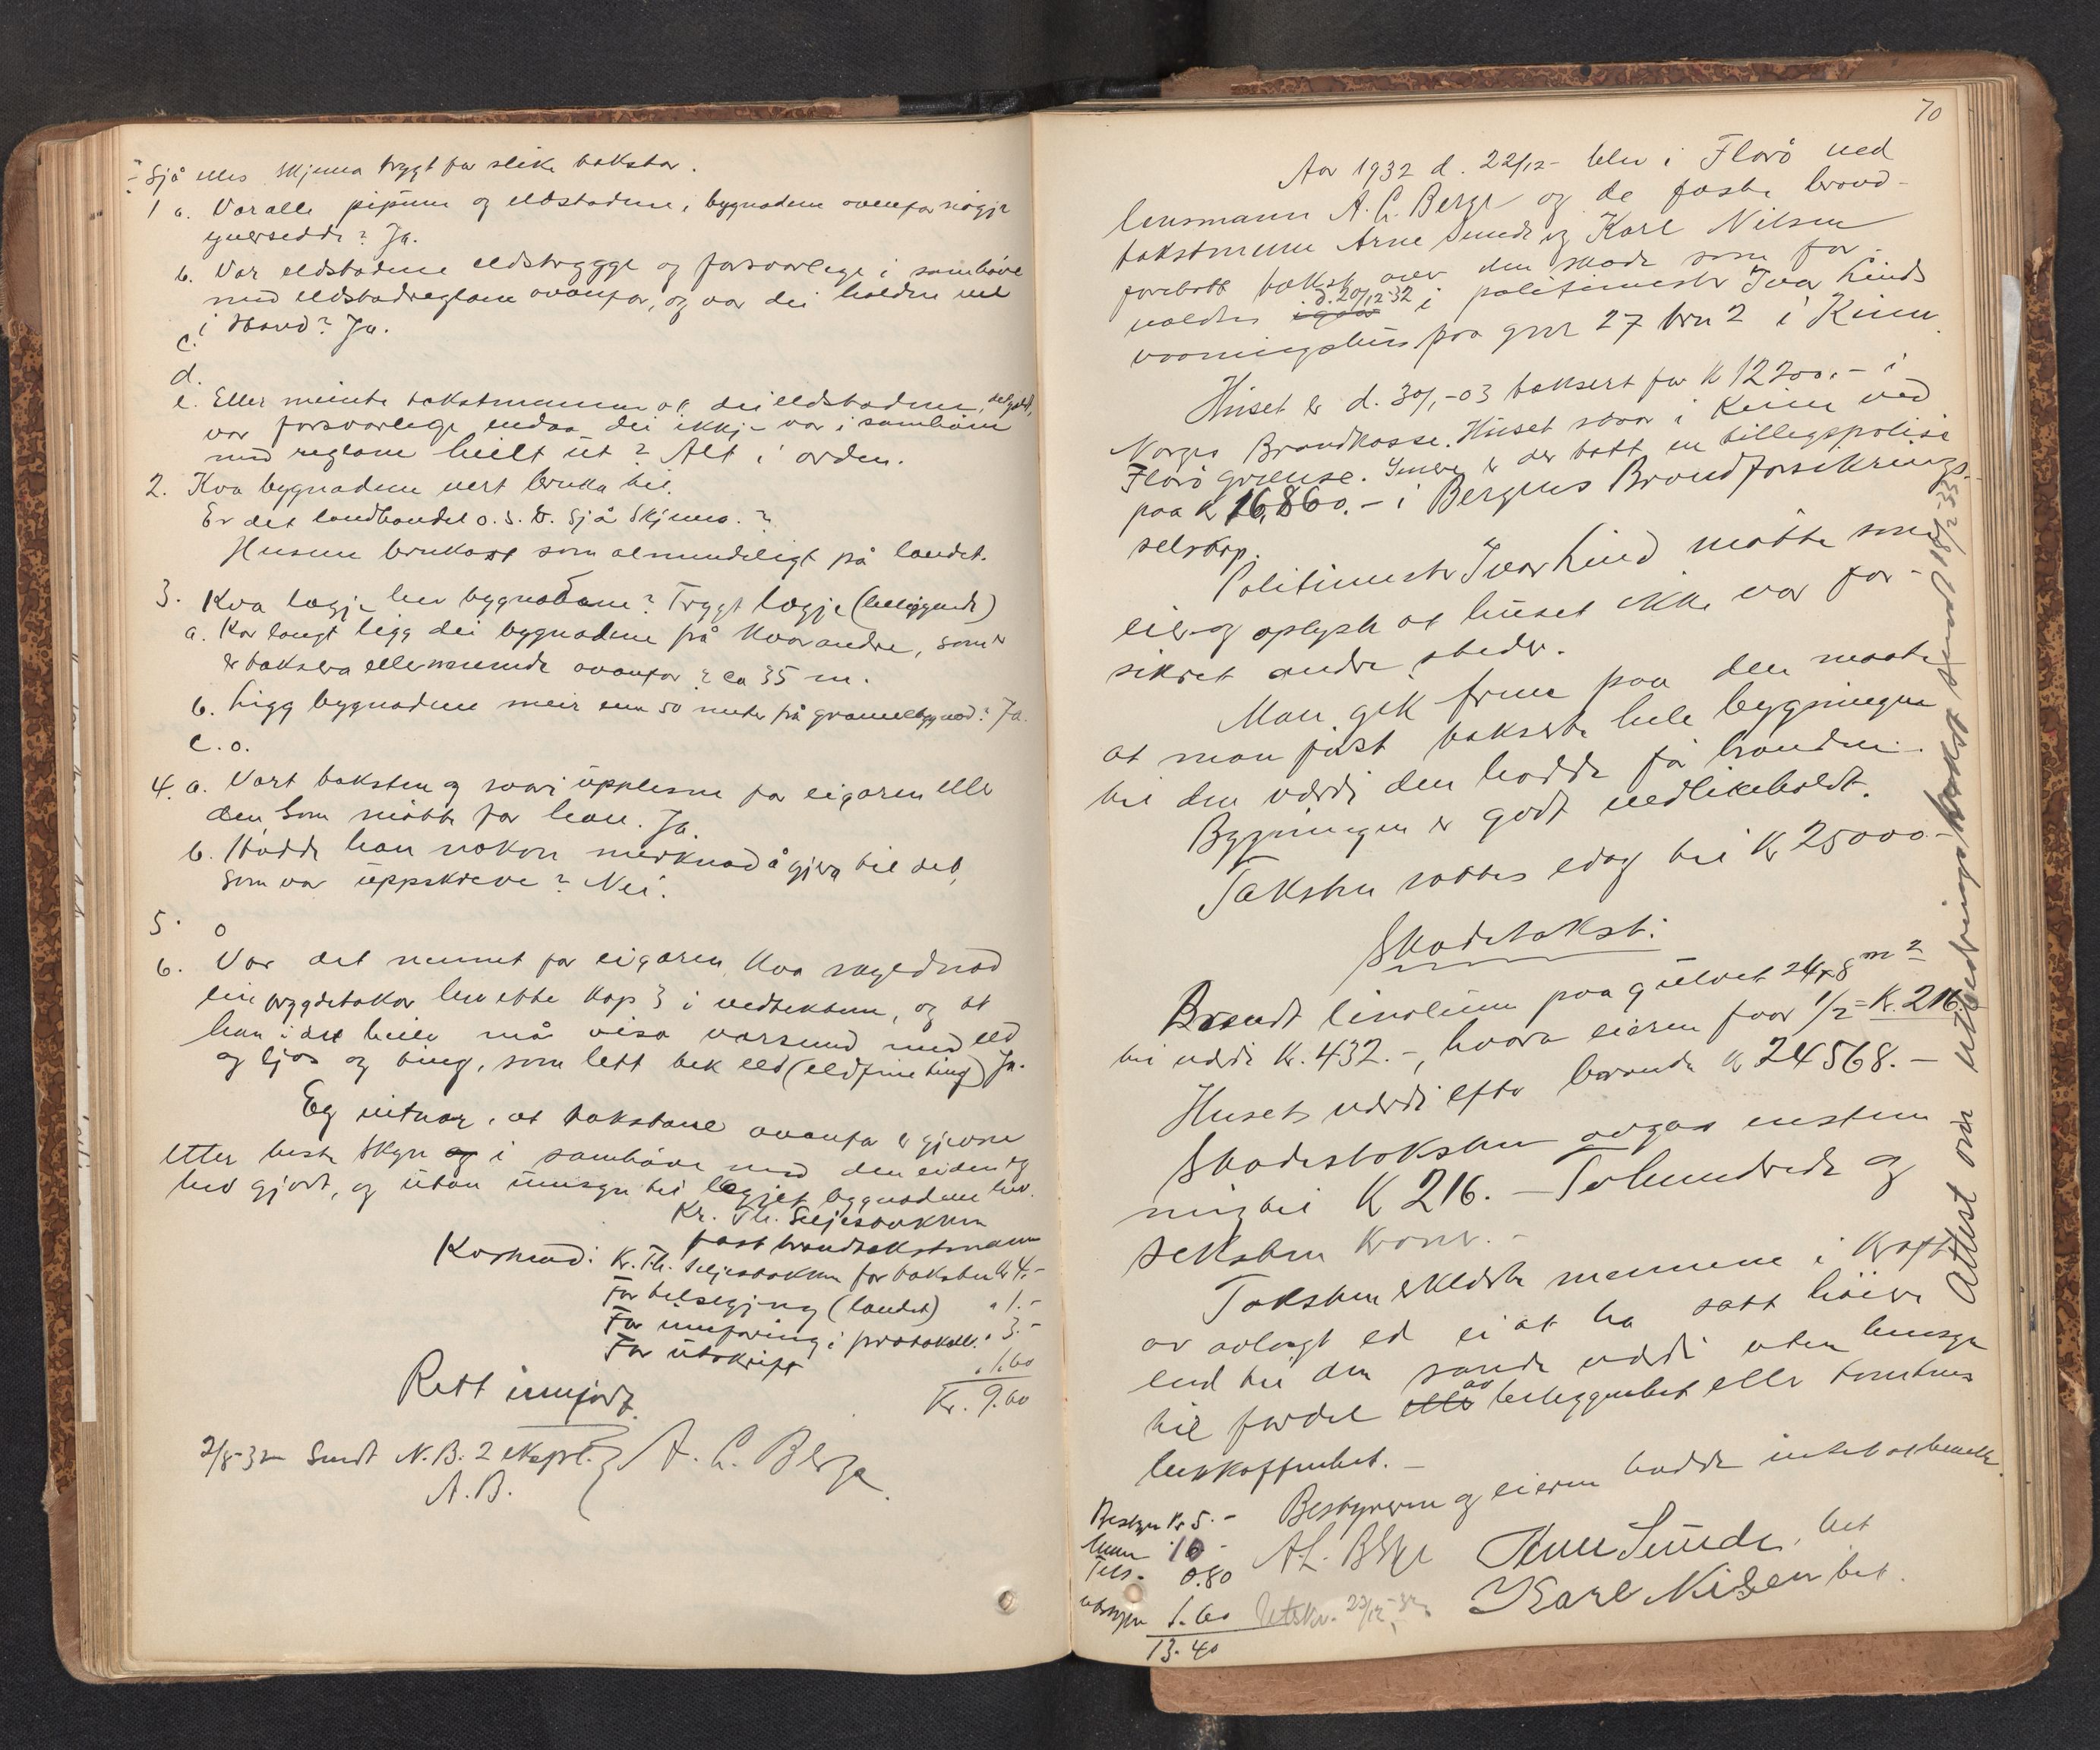 ÷ Sjå elles skjema trygt for slike takstar.
1 a. Var alle pipune og eldstadene i bygnadene ovanfor nøgje
ynersedde? Ja.
b. Var eldstadene eldstrygge og forsvarlege i samhøve
med eldstadreglane ovanfor, og var dei haldne vel
i stand? Ja.
c.
d.
e. Eller meinte takstmannen at dei eldstadene, det gjeld,
var forsvarlege endaa dei ikkje var i samhøve
med reglane heilt ut? Alt i orden.
2. Kva bygnadene vert bruka til.
Er det landhandel o.s.v. Sjå Skjema.?
Husene brukast som almindeligt på landet.
3. Kva lægje hev bygnadane? Trygt lægje (beliggende)
a. Kor langt ligg dei bygnadene frå kvarandre, som er
er taksera eller nemnde ovanfor? ca 35 m.
b. Ligg bygnadene meir enn 50 meter frå grannebygnad? Ja.
c. o.
4. a. Vart taksten og svari upplesne for eigaren eller
den som møtte for han. Ja.
b. Hadde han nokon merknad å gjera til det,
som var uppskreve? Nei.
5. o
6. Var det nemnt for eigaren, kva skyldnad
ein trygdetakar hev etter kap 3 i vedtektene, og at
han i det heile må visa varsemd med eld
og ljos og ting, som lett tek eld (eldfine ting) Ja.
Eg vitnar, at takstane ovanfor er gjevne
etter beste skyn og i samhøve med den eiden eg
hev gjort, og utan umsyn til lægjet bygnadene hev.
Kr. Th. Seljestokken
fast brandtakstmann
Kostnad: Kr. Th. Seljestokken for taksten kr 4.-
For tilsegjing (landet) " 1.-
For innføring i protokoll. " 3.-
For utskrift " 1.60
Kr. 9.60
Rett innført.
2/8-32 Sendt N.B. 2 ekspl. A. L. Berge
A.B.
70
Aar 1932 d. 22/12- blev i Florö ved
lensmann A. L. Berge og de faste brand-
takstmenn Arne Sunde og Karl Nilsen
foretatt takst over den skade som for-
voldtes igaar d. 20/12-32 i politimester Ivar Linds
vaaningshus paa gnr 27 brn 2 i Kinn.
Huset er d. 30/1-03 taksert for k 12200.- i
Norges Brandkasse. Huset staar i Kinn ved
Florö grænse. Senere er der tatt en tillegspolise
paa k 16,860.- i Bergens Brandforsikrings-
selskap.
Politimester Ivar Lind møtte som
eier og oplyste at huset ikke var for-
sikret andre steder.
Man gik frem paa den maate
at man først takserte hele bygningen
til den værdi den hadde før branden.
Bygningen er godt vedlikeholdt.
Taksten sattes idag til k 25000.-
Skadetakst:
Brendt linoleum paa gulvet 24x8 m2
til verdi kr. 432.-, hvorav eieren faar 1/2 = kr. 216
Husets verdi efter branden k 24568.-
Skadestaksten avgas enstem
mig til k 216.- Tohundrede og
seksten kroner.-
Taksten erklærte mennene i kraft
av avlagt ed ei at ha satt høiere
end til den sande verdi uten hensyn
til fordel eller av beliggenhet eller tomtens
beskaffenhet.-
Bestyreren og eieren hadde intet at bemerke.
A.L. Berge Arne Sunde, bet
Karl Nilsen bet.
Bestyr Kr 5.-
Menn 10-
Tels- 0.80
1.60
13.40
Utskr. 22/12-32
Attest om utbedringstakst sendt 18/2-33